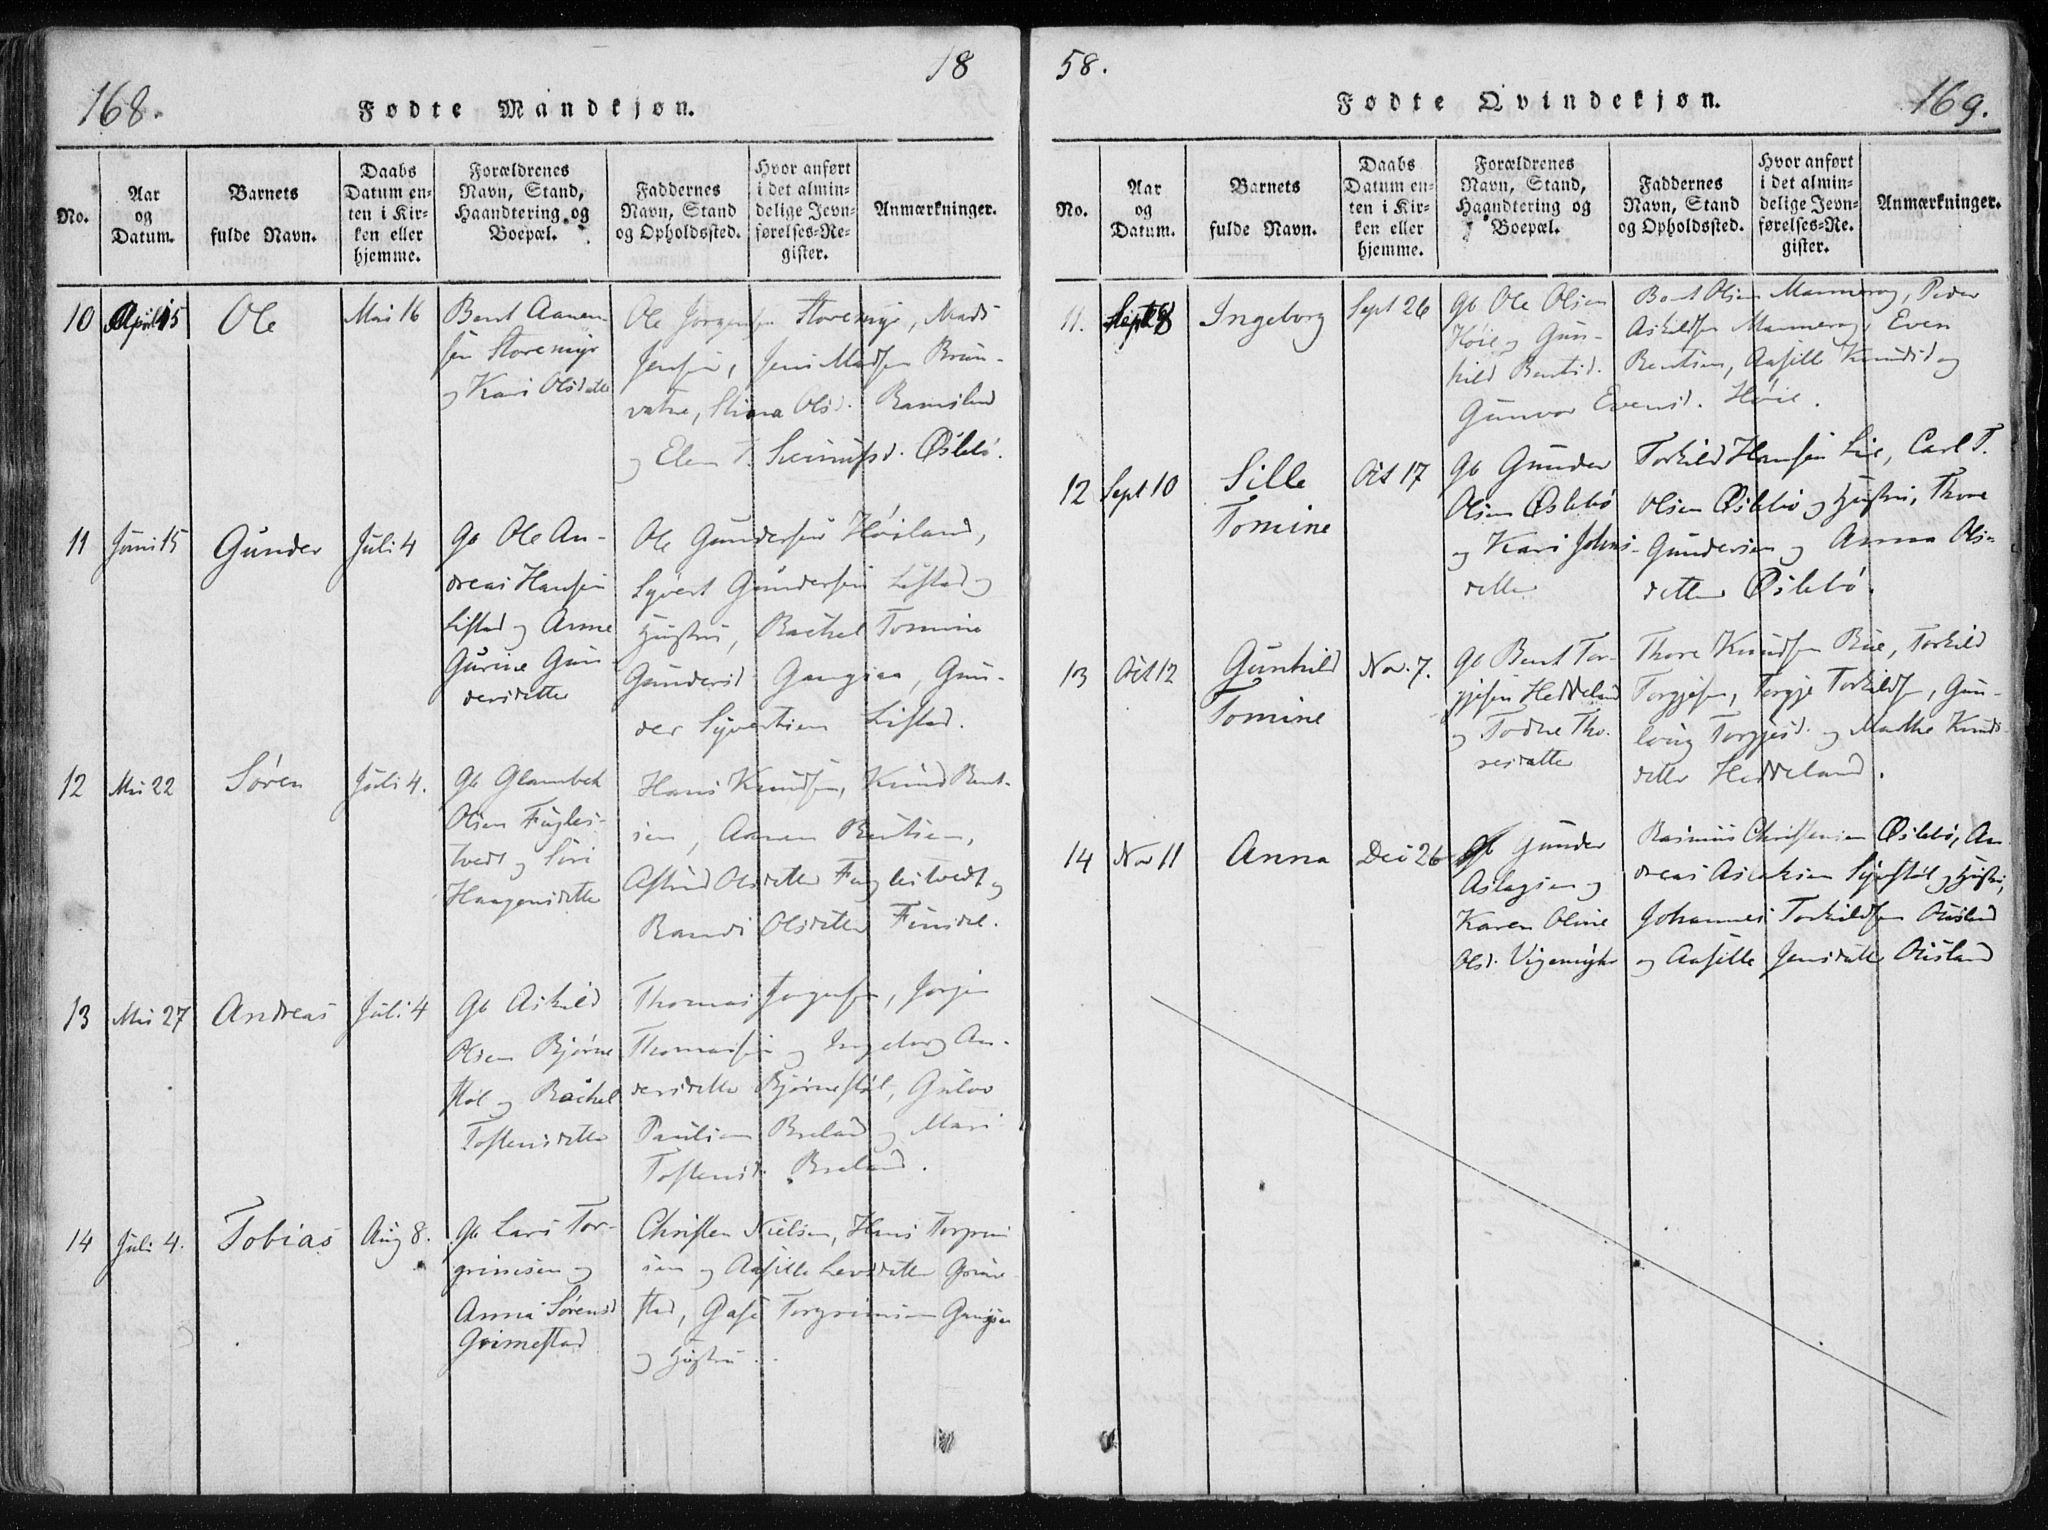 168.
18
Fødte Mandkjøn.
No.
Aar
og
Datum.
Barnets
fulde Navn.
Daabs
Datum en-
ten i Kir-
ken eller
hjemme.
Forældrenes
Navn, Stand,
Haandtering og
Boepæl.
Faddernes
Navn, Stand
og Opholdssted.
Hvor anført
i det almin-
delige Jevn-
førelses-Re-
gister.
Anmærkninger.
10 April 15 Ole Mai 16
Bent Aanen-
sen Storemyr
og Kari Olsdatter
Ole Jørgensen Storemyr, Mads
Jensen, Jens Madsen Brun-
vatne, Stina Olsd. Ramsland
og Elen T. Øslebö.
11 Juni 15 Gunder Juli 4
Gb Ole An-
dreas Hansen
Listad og Anne
Gurine Gun-
dersdatter
Ole Gundersen Høisland,
Syvert Gundersen Listad og
Hustru, Rachel Tomine
Gundersd. Gangsaa, Gun-
der Syvertsen Listad.
12 Mai 22 Søren Juli 4.
Gb Glambek
Olsen Fugles-
tvedt og Siri
Haagensdatter
Hans Knudsen, Knud Bent-
sen, Aanen Bentsen,
Astrid Olsdatter Fuglestvedt og
Randi Olsdatter Finsdal.
13 Mai 27 Andreas Juli 4
Gb Askild
Olsen Bjørne
støl og Rachel
Tostensdatter
Thomas Jørgensen, Jørgen
Thomassen og Ingeborg An-
dersdatter Bjørnestøl, Gulov
Paulsen Breland og Mari
Tostensd. Breland.
14 Juli 4. Tobias Aug 8.
Gb Lars Tor-
grimsen og
Anna Sørensd
Grimestad
Christen Nielsen, Hans Torgrim
sen og Aasille Larsdatter Grime
stad, Torgrimsen Gangsaa
og Hustru.
58.
169.
Fødte Qvindekjøn.
No.
Aar
og
Datum.
Barnets
fulde Navn.
Daabs
Datum en-
ten i Kir-
ken eller
hjemme.
Forældrenes
Navn, Stand,
Haandtering og
Boepæl.
Faddernes
Navn, Stand
og Opholdssted.
Hvor anført
i det almin-
delige Jevn-
førelses-Re-
gister.
Anmærkninger.
11. Sept 8 Ingeborg Sept 26
Gb Ole Olsen
Høie og Gun-
hild Bentsd.
Bent Olsen Mannerog, Peder
Askildsen Mannerog, Even
Bentsen, Aasille Knudsd og
Gunvor Evensd. Høie.
12 Sept 10 Sille
Tomine
Oct 17
Gb Gunder
Olsen Øslebö
og Kari Johns-
datter
Torkild Hansen Lie, Carl T.
Olsen Øslebö og Hustru, Thore
Gundersen og Anna Ols-
datter Øslebö.
13 Oct 12 Gunhild
Tomine
Nov. 7.
Gb Bent Tor-
gjesen Heddeland
og Todne Tho-
resdatter
Thore Knudsen Bue, Torkild
Torgjesen, Tergje Torkildsen, Gun-
loug Torgjesd. og Marthe Knuds-
datter Heddeland.
14 Nov 11 Anna Dec 26
Gb Gunder
Aslagsen og
Karen Oline
Olsd. Vigemyhr
Rasmus Christensen Øslebö, An-
dreas og Hustru,
Johannes Torkildsen Ousland
og Aasille Jensdatter Ousland